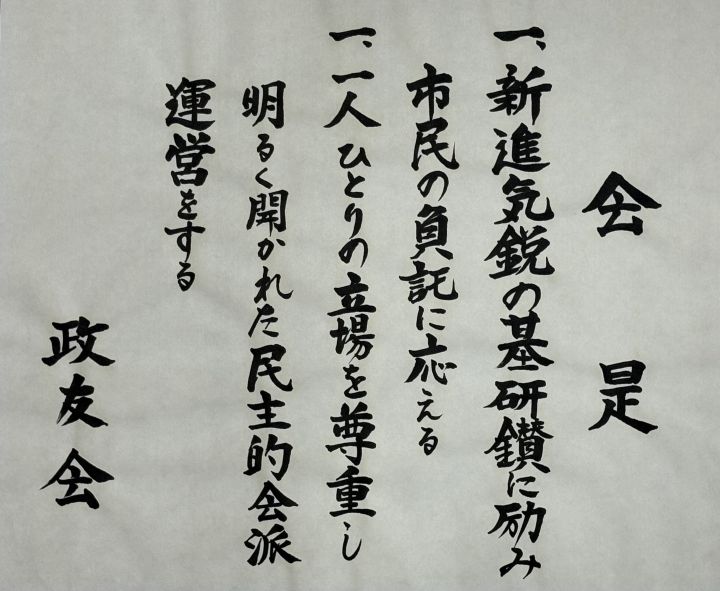 会是
一、新進気鋭の基研鑚に励み
市民の負託に応える
一、一人ひとりの立場を尊重し
明るく開かれた民主的会派
運営をする
政友会